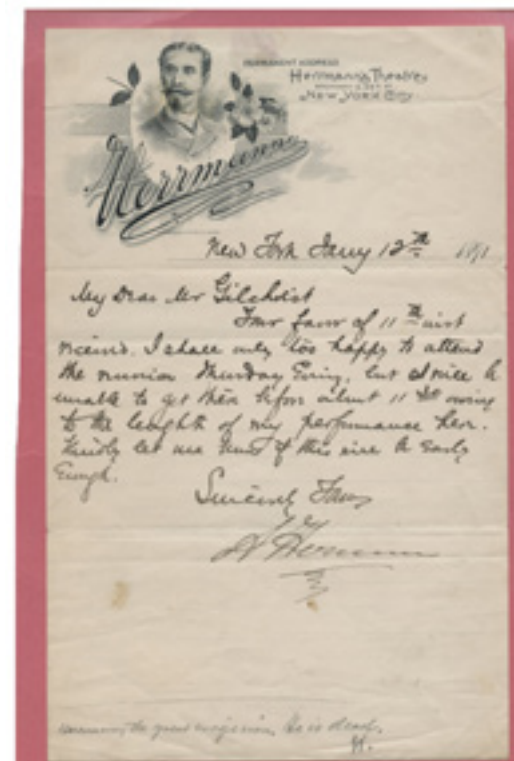 PERMANENT ADDRESS
Herrmann's Theatre
BROADWAY & 29TH ST
New York City
Herrmann
New York Jany 12th 1891
My Dear Mr Gilchrist
Your favor of 11th inst
received. I shall only too happy to attend
the reunion Thursday Evning, but I will be
unable to get there before about 11 owing
to the lenght of my performance here.
Kindly let me know if this will be Early
Enough.
Sincerely Yours
A Herrmann
Herrmann, the great magician. He is dead.